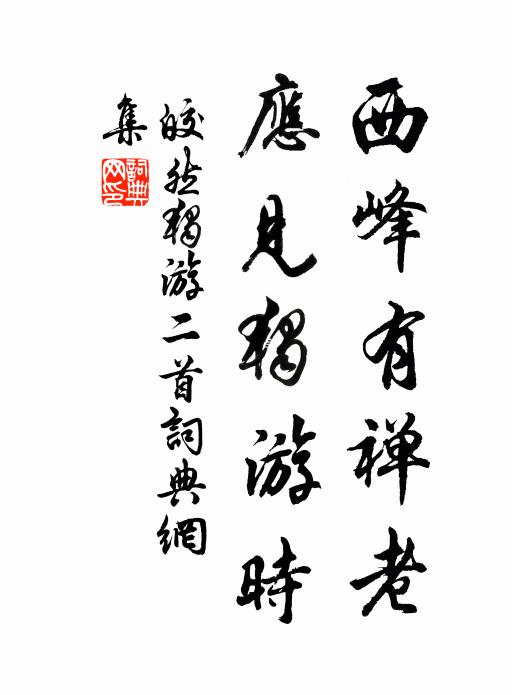 西峰有禅老
應見獨游時
皎然獨游二首詞典網
集
詞典網印